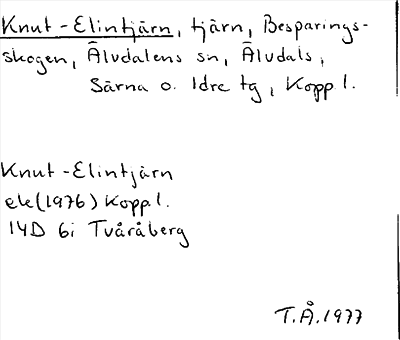 Knut-Elintjärn, tjärn, Besparings-
skogen, Älvdalens sn, Älvdals,
Särna o. Idre tg, Kopp l.
Knut-Elintjärn
ek(1976) Kopp l.
14D 6i Tvåråberg
T.Å.1977